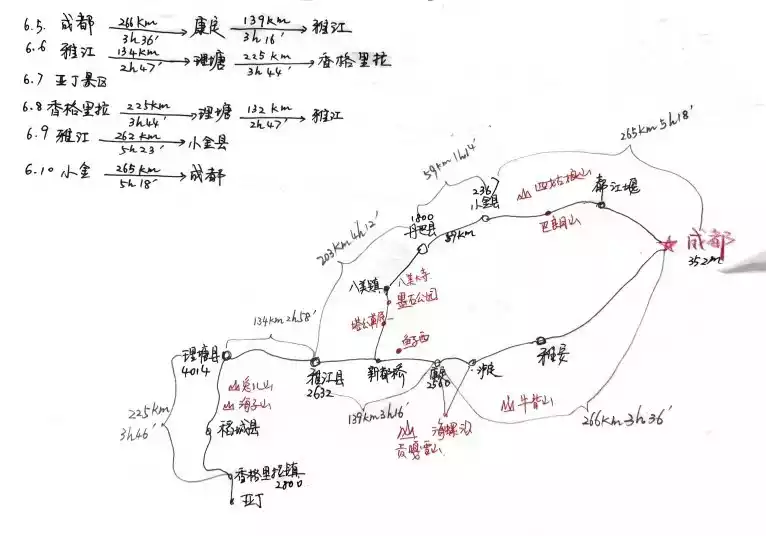 6.5. 成都 266km 3h36′ → 康定 139km 3h16′ → 雅江
6.6 雅江 134km 2h47′ → 理塘 225km 3h44′ → 香格里拉
6.7 亚丁景区
6.8 香格里拉 225km 3h44′ → 理塘 132km 2h47′ → 雅江
6.9 雅江 262km 5h23′ → 小金县
6.10 小金 265km 5h18′ → 成都
265km 5h18′
59km 1h14′
236
小金县
四姑娘山
都江堰
巴朗山
成都
352m
203km 4h12′
1800
丹巴县
59km
八美镇
八美大寺
墨石公园
塔公草原
鱼子西
134km 2h58′
理塘县
4014
雅江县
2632
新都桥
康定
2560
泸定
雅安
兔儿山
海子山
225km
3h46′
稻城县
139km 3h16′
贡嘎雪山
海螺沟
牛背山
266km 3h36′
香格里拉镇
2800
亚丁